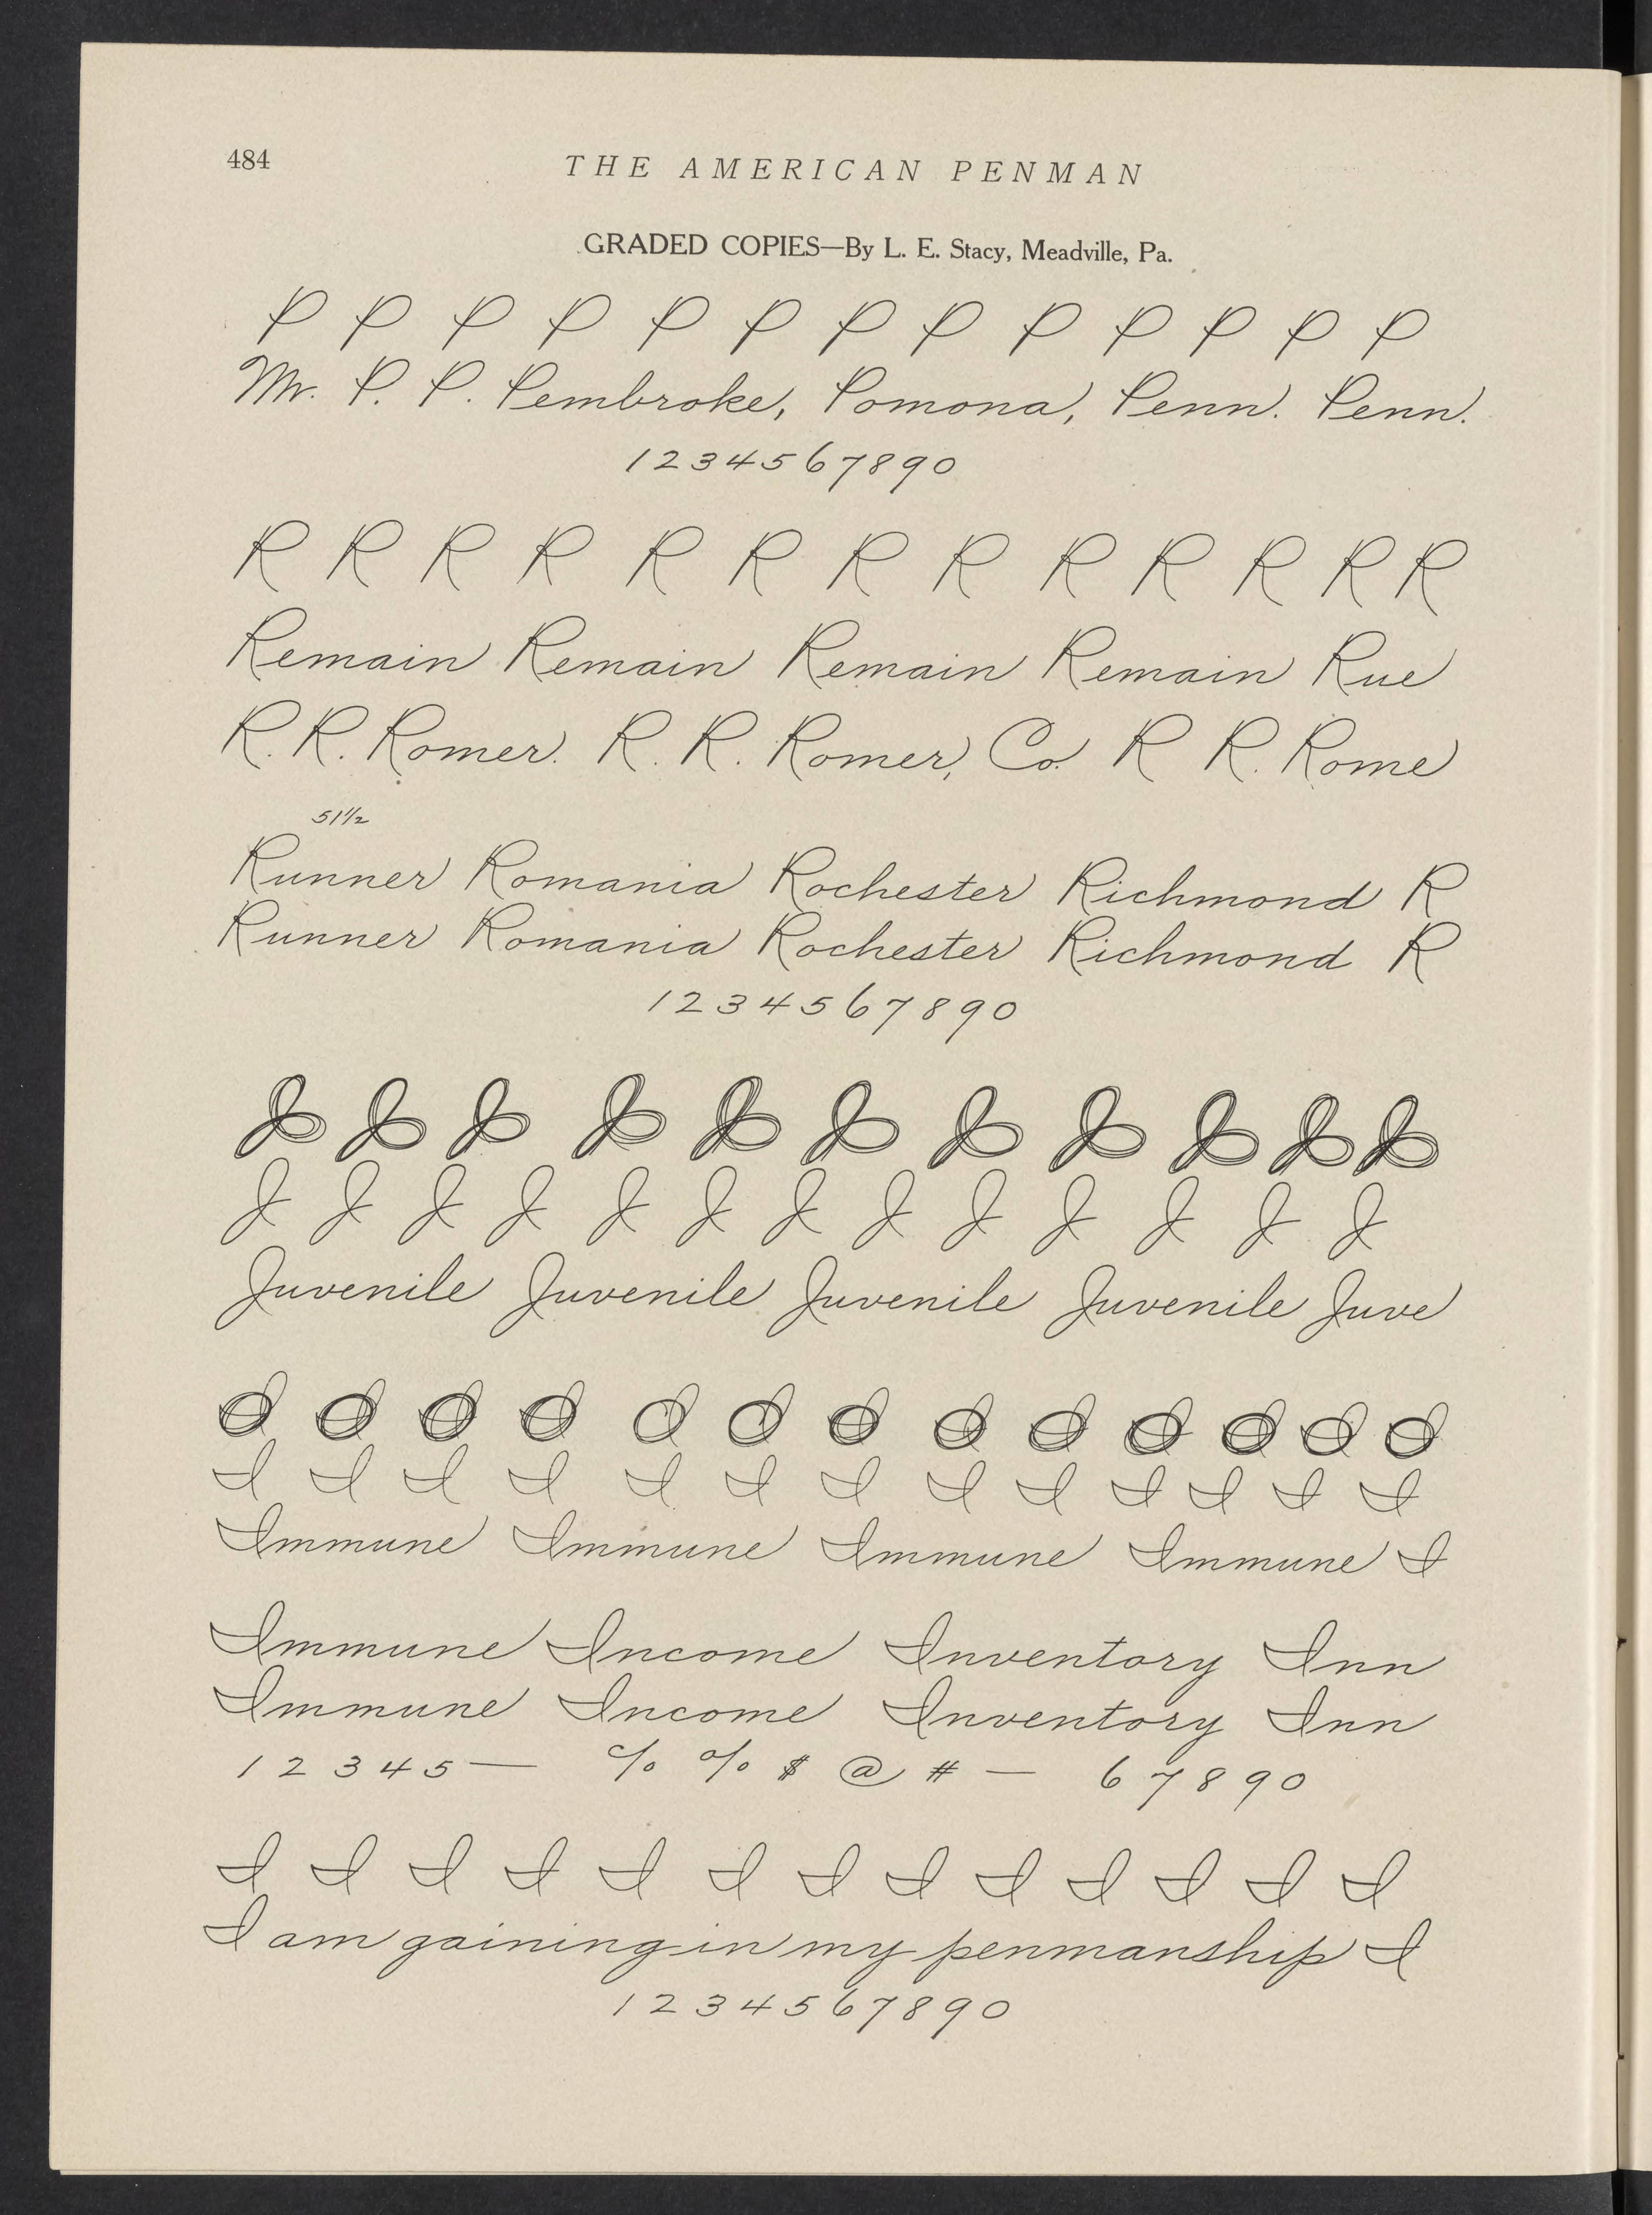 484
THE AMERICAN PENMAN
GRADED COPIES—By L. E. Stacy, Meadville, Pa.
P P P P P P P P P P P P P
Mr. P. P. Pembroke, Pomona, Penn. Penn.
1 2 3 4 5 6 7 8 9 0
R R R R R R R R R R R R R
Remain Remain Remain Remain Rue
R. R. Romer. R. R. Romer, Co. R R. Rome
51½
Runner Romania Rochester Richmond R
Runner Romania Rochester Richmond R
1 2 3 4 5 6 7 8 9 0
J J J J J J J J J J J
J J J J J J J J J J J J J
Juvenile Juvenile Juvenile Juvenile Juve
I I I I I I I I I I I I I
I I I I I I I I I I I I I
Immune Immune Immune Immune I
Immune Income Inventory Inn
Immune Income Inventory Inn
1 2 3 4 5 — % % $ @ # — 6 7 8 9 0
I I I I I I I I I I I I I
I am gaining in my penmanship I
1 2 3 4 5 6 7 8 9 0